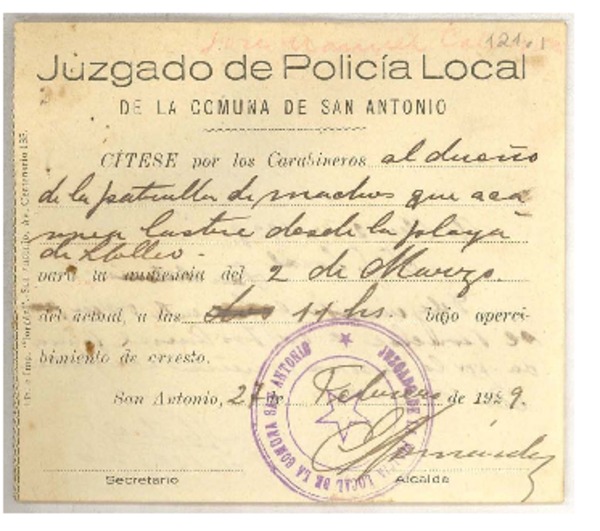 121-1
Juzgado de Policía Local
DE LA COMUNA DE SAN ANTONIO
CÍTESE por los Carabineros al dueño
de la patrulla de machos que aca
rrea lastre desde la playa
de Llolleo.
para la audiencia del 2 de Marzo.
del actual, a las dos 11 hs. bajo aperci-
bimiento de arresto.
San Antonio, 27 de Febrero de 1929.
JUZGADO DE POLICIA LOCAL DE LA COMUNA SAN ANTONIO
Secretario
Alcalde